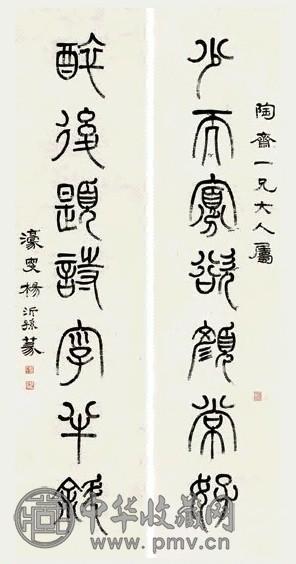 陶齋一兄大人屬
少而寡欲顏常好
醉後題詩字半斜
濠叟楊沂孫篆
中华收藏网
www.pmv.cn